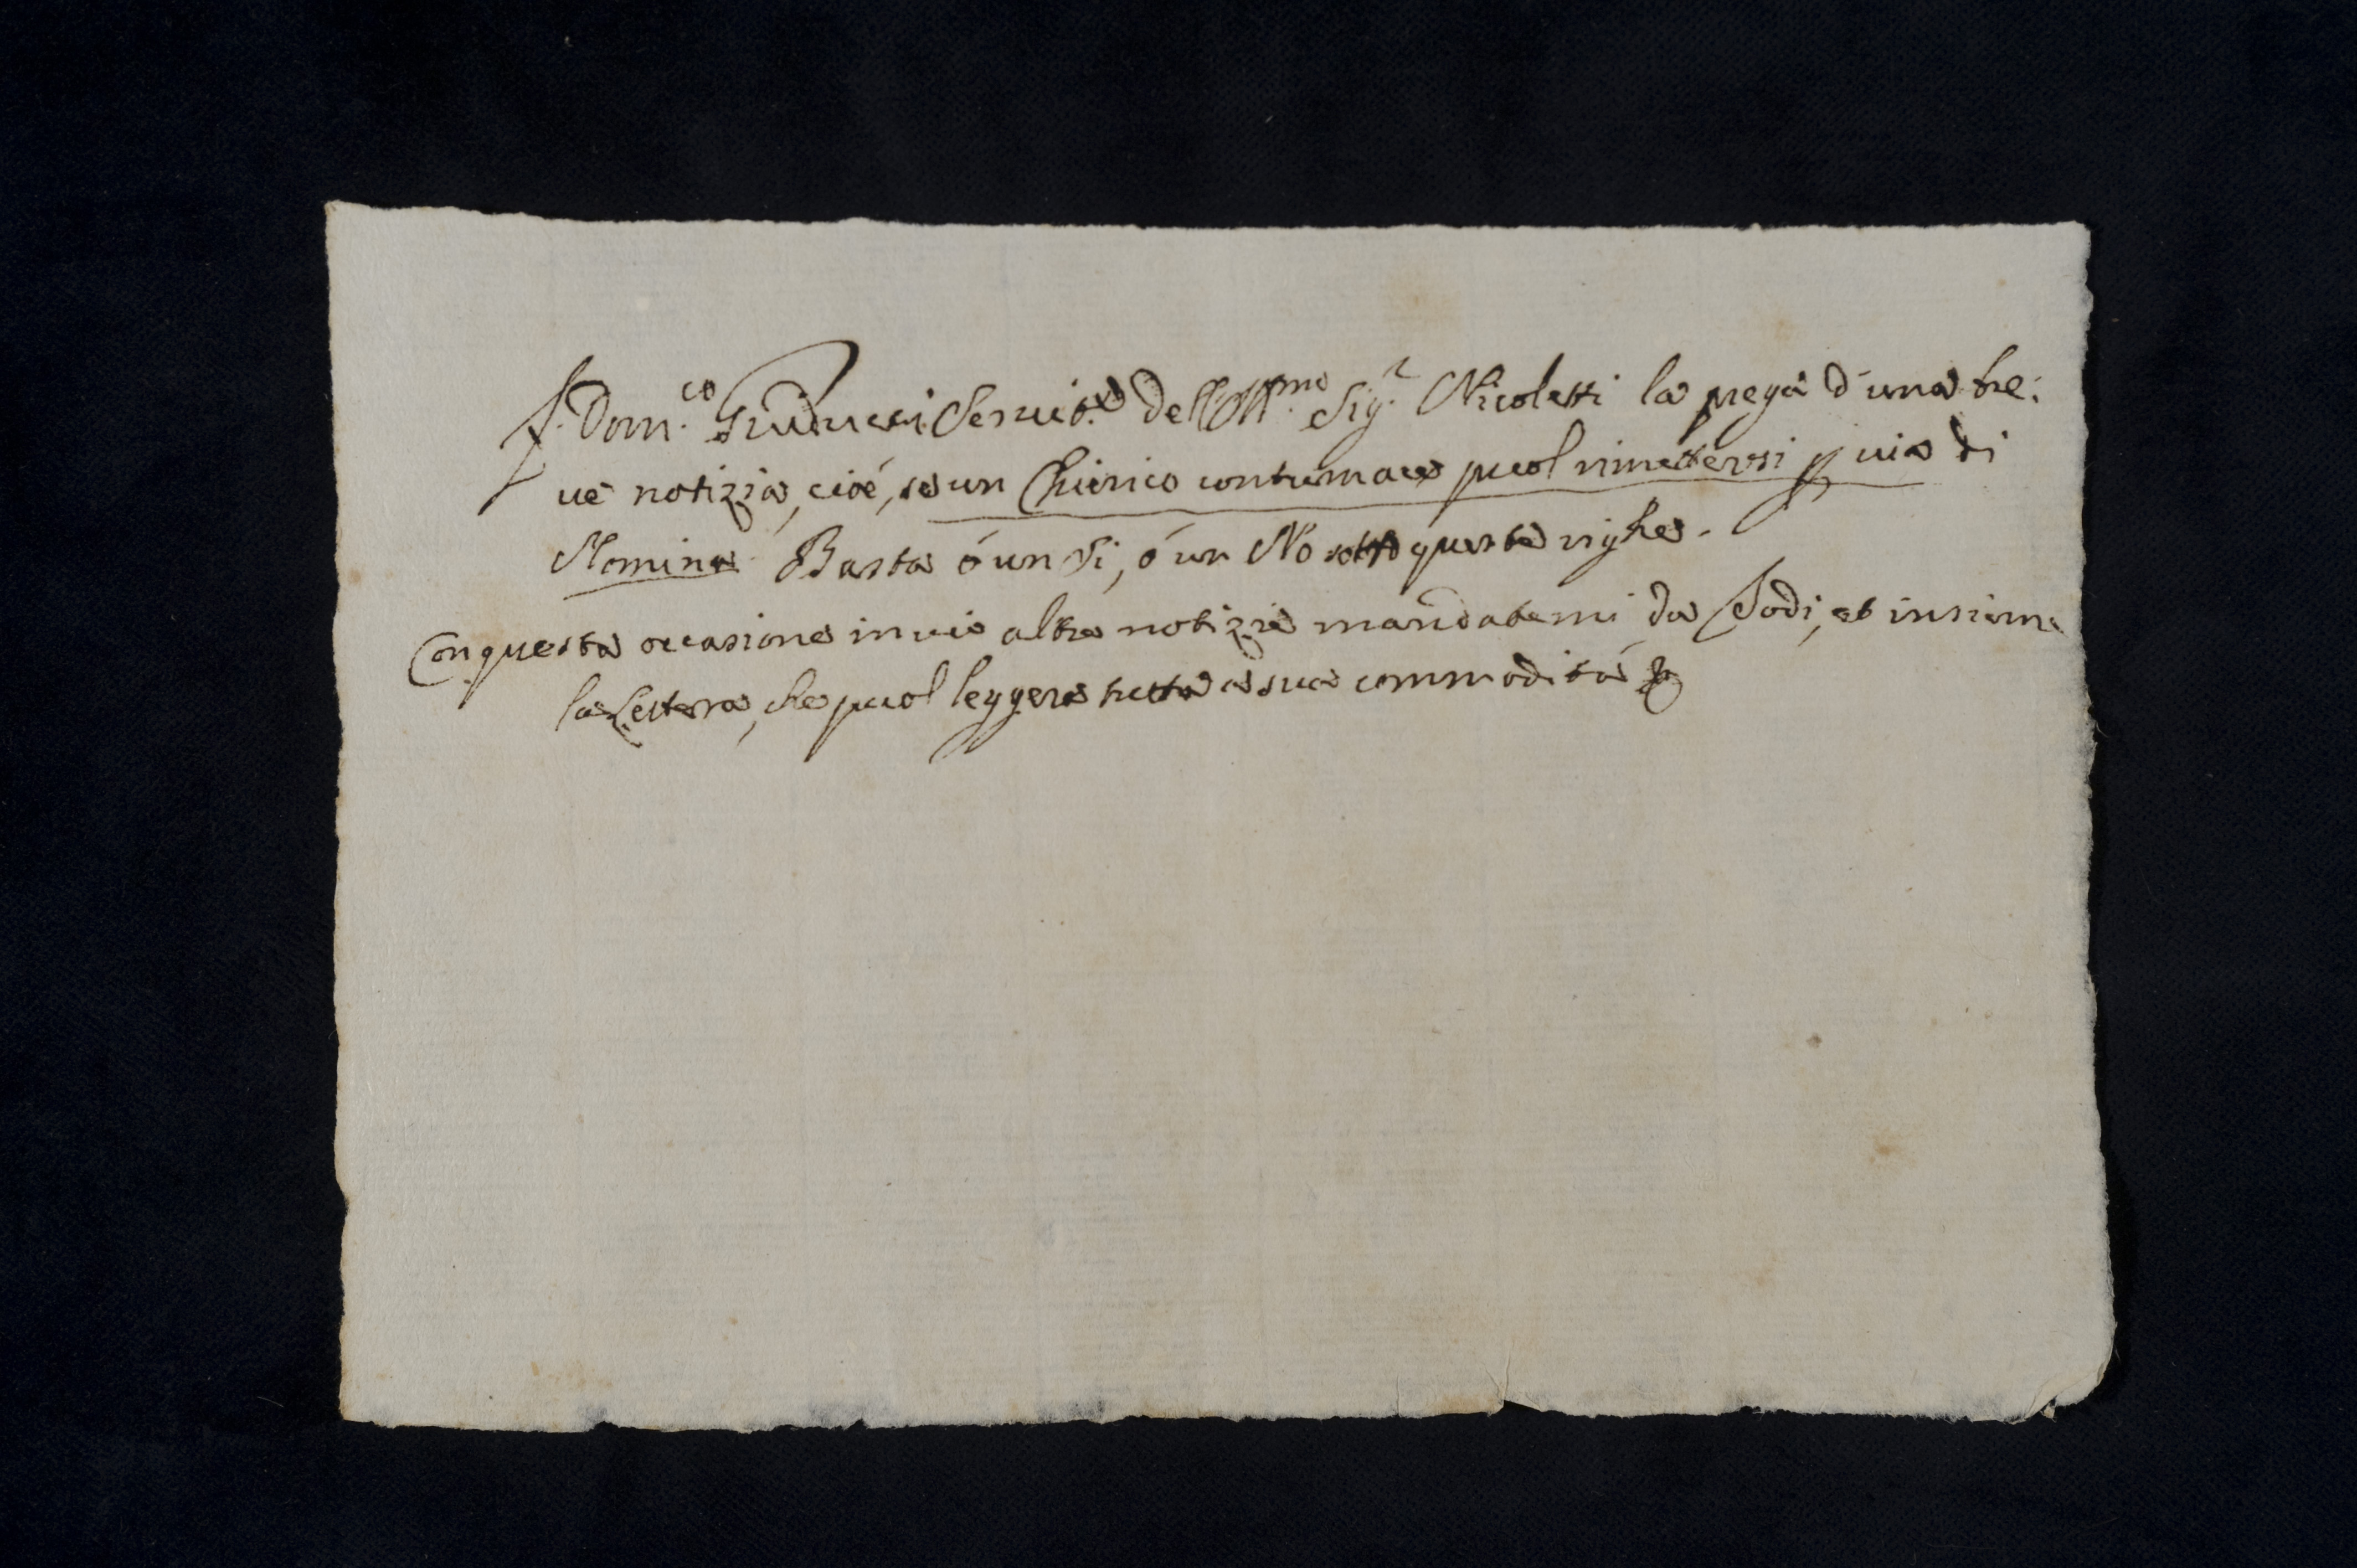 F. Dom.co Guiducci Servit.e dell'Ill.mo Sig.r Nicoletti la prega d'una bre:
ve notizia, cioé, se un Chierico contumace puol rimettersi p via di
Nomina. Basta ó un Si, ó un No sotto queste righe.
Con questa occasione invio altre notizie mandatemi da Todi, et insieme
la Lettera, che puol leggere tutta a sua commoditá